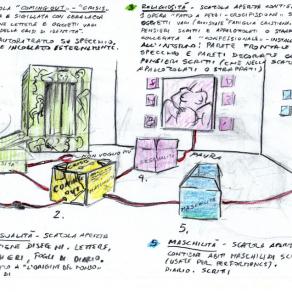 OLA "COMING-OUT" - "CRISI-
E SIGILLATA CON CERALACCA
NE LETTERE E OGGETTI VARI
DELLA CRISI DI IDENTITÀ".
AUTORITRATTO SU SPECCHIO,
INCOLLATO ESTERNAMENTE.
RELIGIOSITÀ - SCATOLA APERTA CONTIE
1 OPERA "FATTO A PEZZI - CROCIFISSIONE - S
OGGETTI VARI
PENSIERI SCRITTI E APPALLOTTOLATI O STRAP
COLLEGATA A "CONFESSIONALE" - INSTALL
ALL'INTERNO: PARETE FRONTALE
SPECCHIO E PARETI DECORATE CO
PENSIERI SCRITTI (CHE NELLE SCATO
APPALLOTTOLATI O STRAPPATI)
NON VOGLIO
PAURA
SESSUALITÀ
COMING
OUT
2.
4.
5.
SUALITÀ - SCATOLA APERTA
TIENE DISEGNI, LETTERE,
IERI, FOGLI DI DIARIO,
TO A "L'ORIGINE DEL MONDO"
DI
5 MASCHILITÀ - SCATOLA APER
CONTIENE ABITI MASCHILI DI SC
(USATE PER PERFORMANCE).
DIARIO. SCRITTI